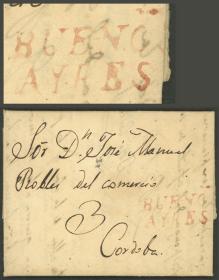 BUENO
AYRES
Sōr Dⁿ José Manuel
Robles del comercio
3
BUENO
AYRES
Cordoba.